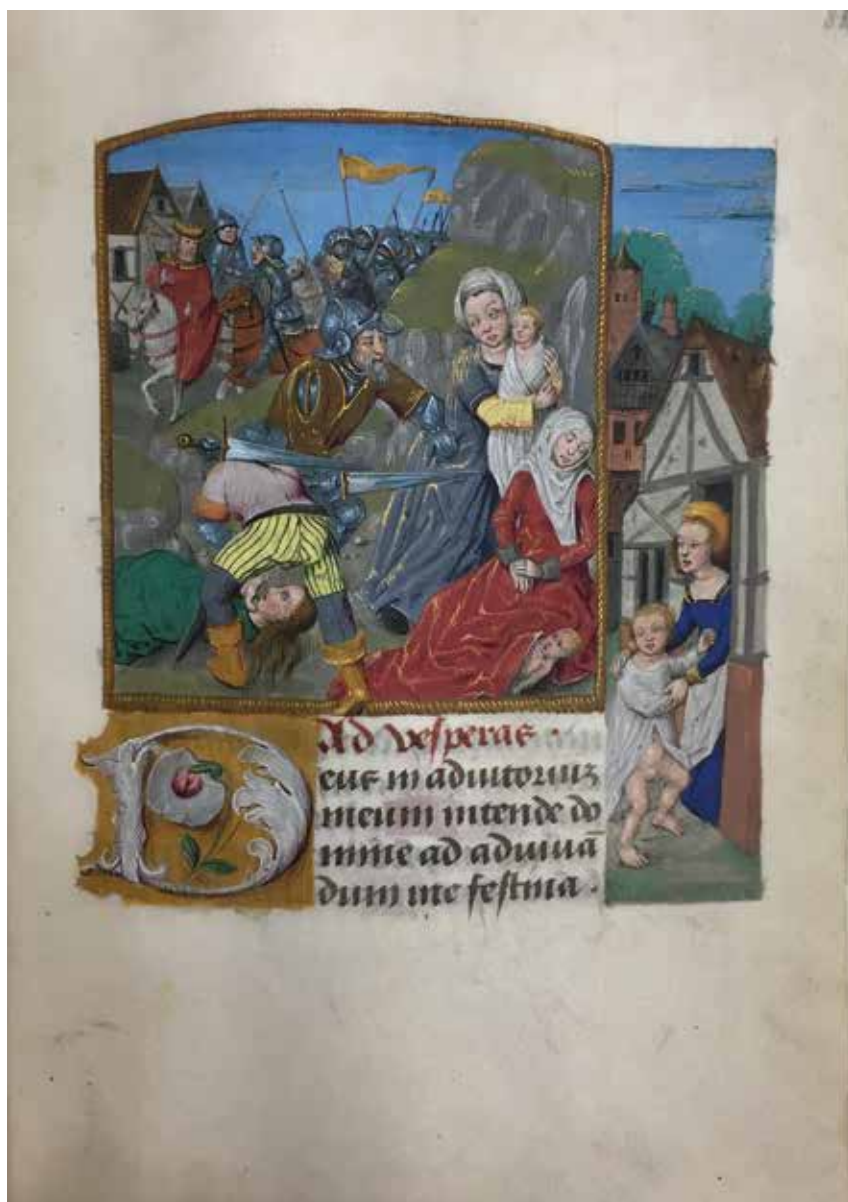 Ad vesperas.
Deus in adiutoriuz
meum intende do
mine ad adiuuā
dum me festina.